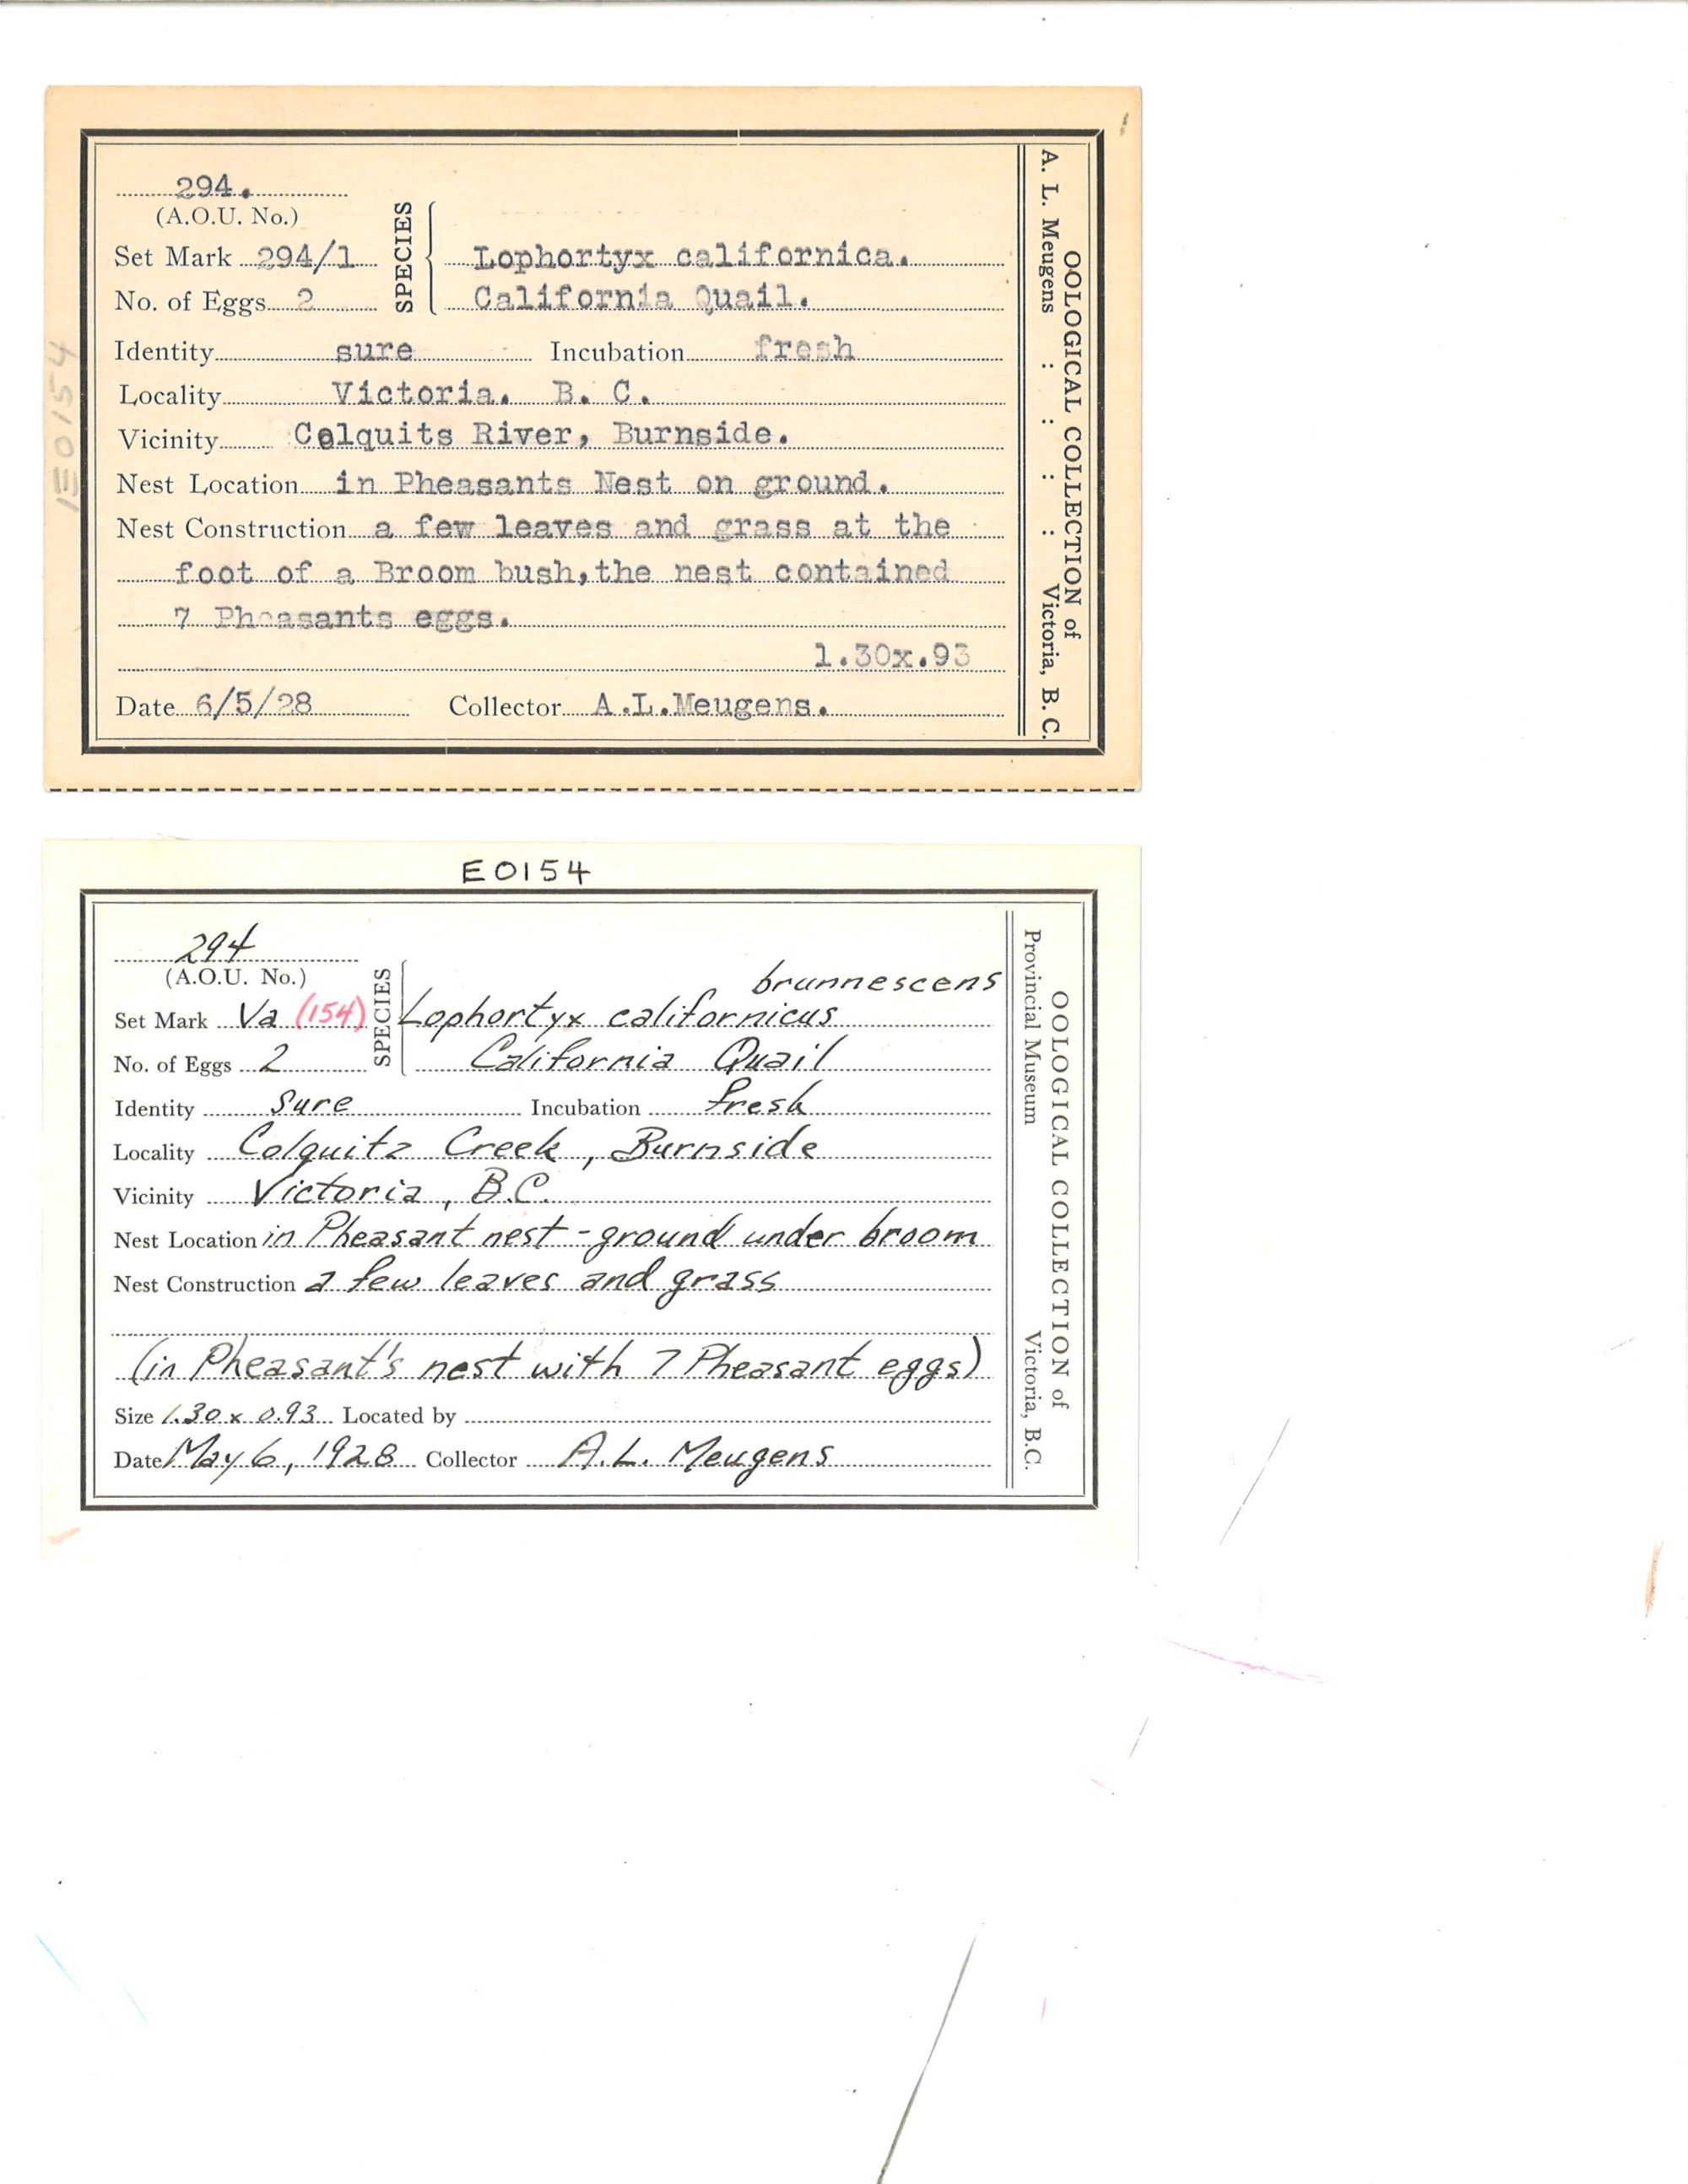 294.
(A.O.U. No.)
SPECIES
Set Mark 294/1 Lophortyx californica.
No. of Eggs 2 California Quail.
Identity sure Incubation fresh
Locality Victoria. B. C.
Vicinity Colquits River, Burnside.
Nest Location in Pheasants Nest on ground.
Nest Construction a few leaves and grass at the
foot of a Broom bush,the nest contained
7 Pheasants eggs.
1.30x.93
Date 6/5/28 Collector A.L.Meugens.
OOLOGICAL COLLECTION of
A. L. Meugens : : : : Victoria, B. C.
E0154
E0154
294
(A.O.U. No.)
SPECIES
brunnescens
Set Mark Va (154) Lophortyx californicus
No. of Eggs 2 California Quail
Identity Sure Incubation fresh
Locality Colquitz Creek, Burnside
Vicinity Victoria, B.C.
Nest Location in Pheasant nest - ground under broom
Nest Construction a few leaves and grass
(in Pheasant's nest with 7 Pheasant eggs)
Size 1.30 x 0.93 Located by
Date May 6, 1928 Collector A.L. Meugens
OOLOGICAL COLLECTION of
Provincial Museum Victoria, B.C.